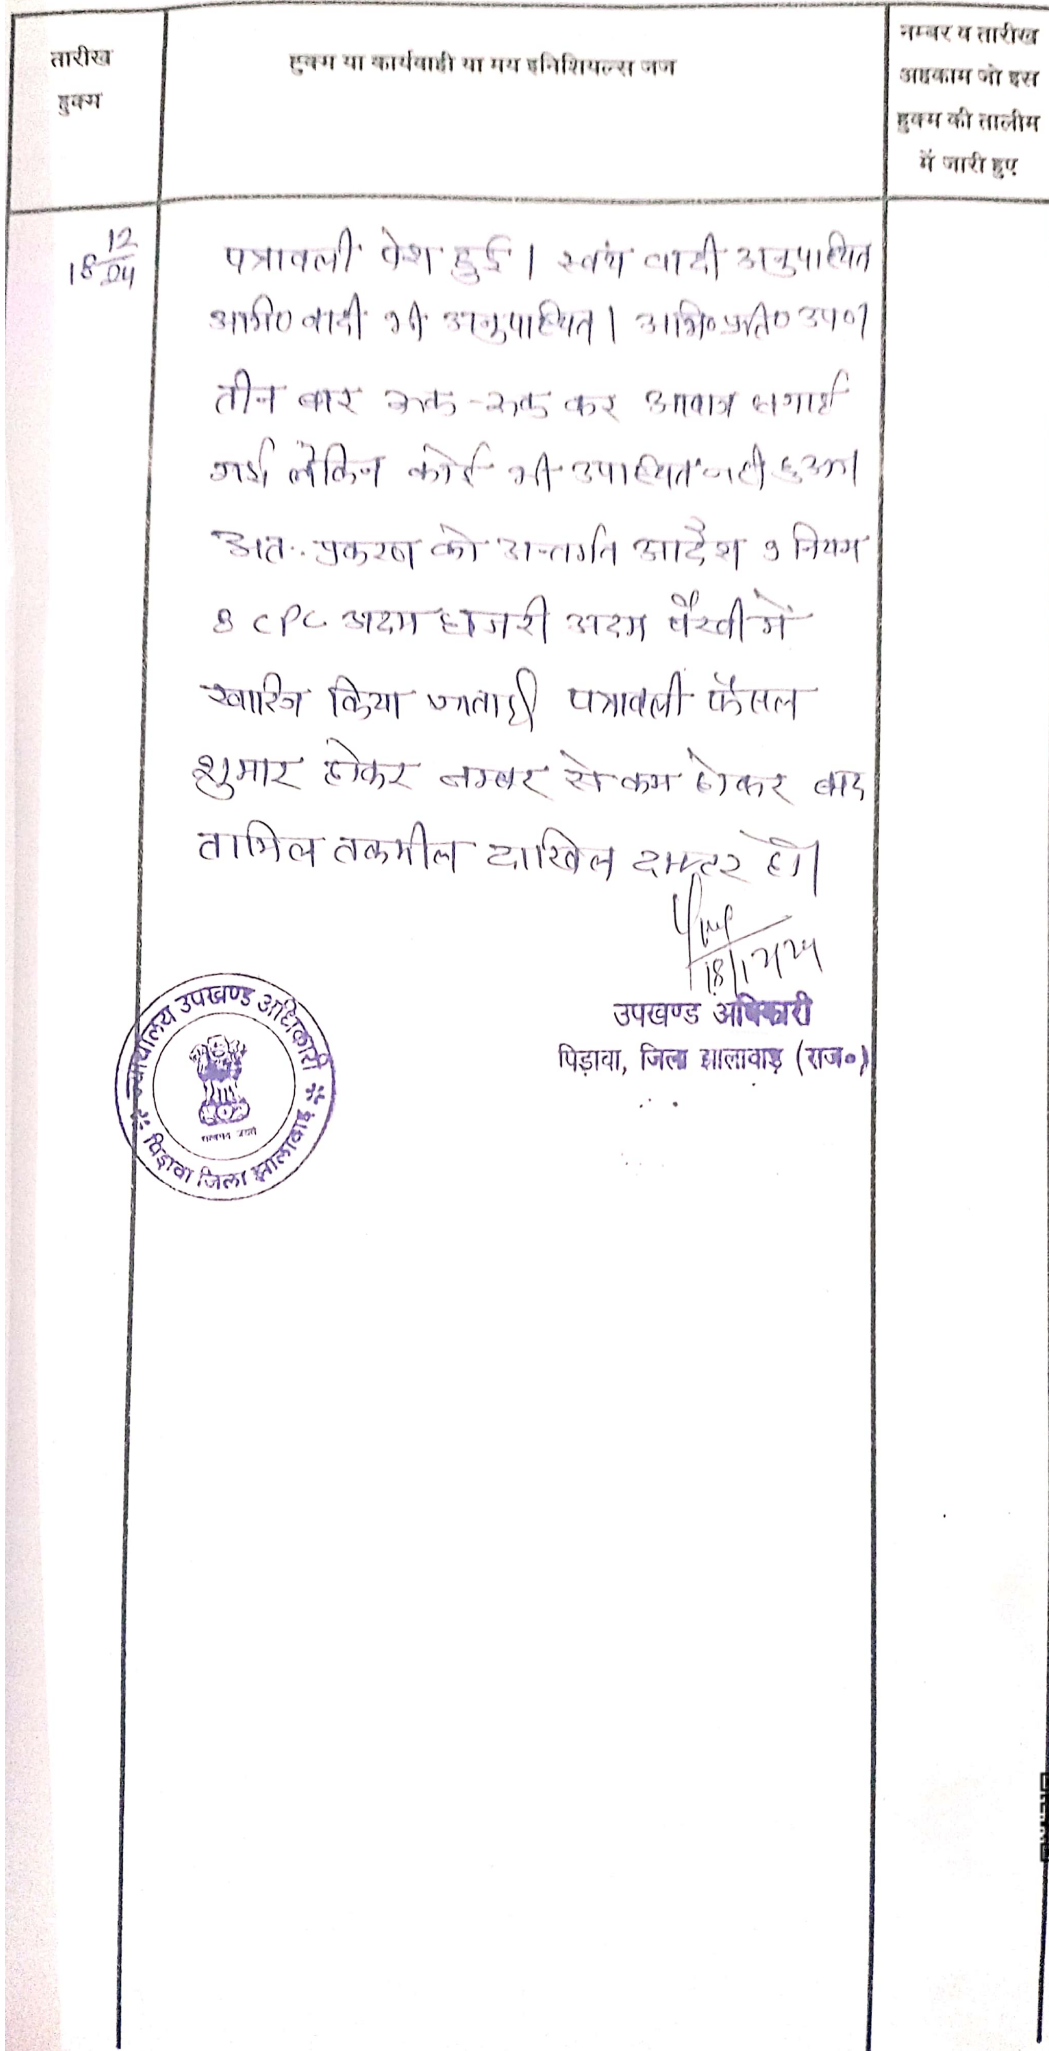 तारीख
हुक्म
हुक्म या कार्यवाही या मय इनिशियल्स जज
नम्बर व तारीख
अहकाम जो इस
हुक्म की तालीम
में जारी हुए
18 12/24
पत्रावली पेश हुई। स्वयं वादी अनुपस्थित
अभि० वादी भी अनुपस्थित। अभि० प्रति० उप०।
तीन बार रूक-रूक कर आवाज लगाई
गई लेकिन कोई भी उपस्थित नही हुआ।
अतः प्रकरण को अन्तर्गत आदेश 9 नियम
8 CPC अदम हाजरी अदम पैरवी में
खारिज किया जाता है। पत्रावली फैसल
शुमार होकर नम्बर से कम होकर बाद
तामिल तकमील दाखिल दफ्तर हो।
18/12/24
उपखण्ड अधिकारी
पिड़ावा, जिला झालावाड़ (राज०)
न्यायालय उपखण्ड अधिकारी
पिड़ावा जिला झालावाड़
सत्यमेव जयते